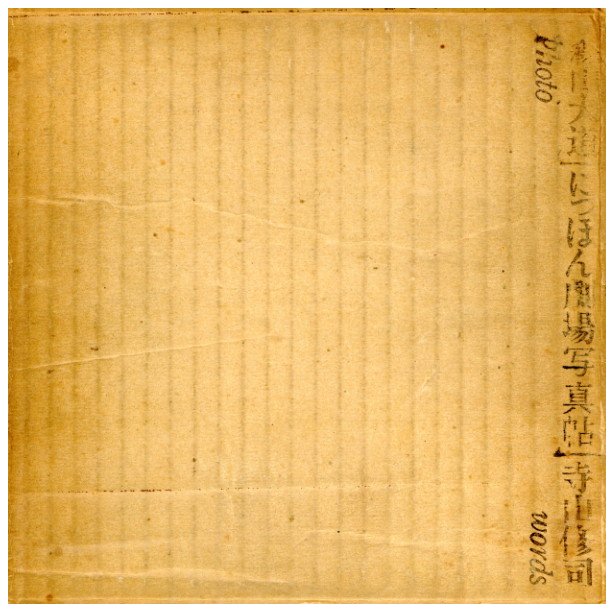 森山大道「にっぽん劇場写真帖」寺山修司
Photo
words